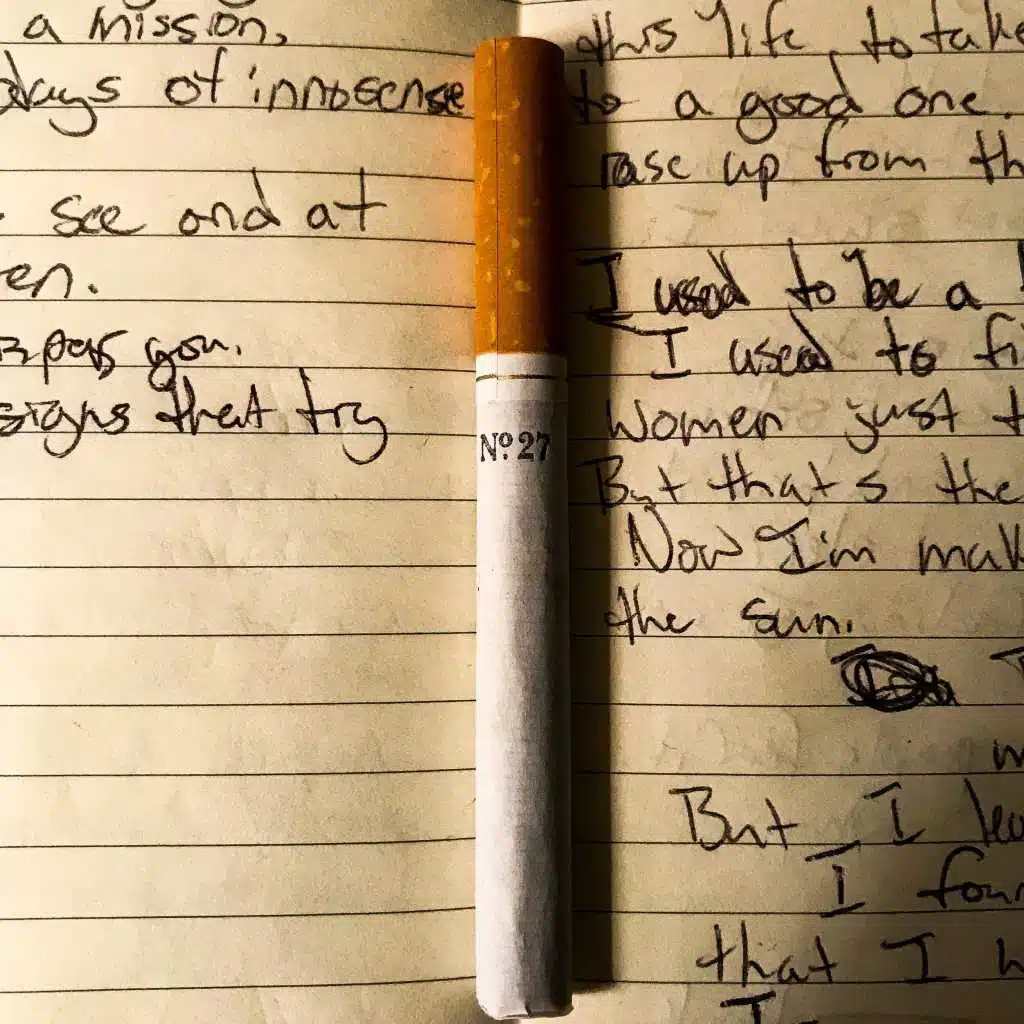 a mission,
days of innosense
see and at
en.
you.
signs that try
No. 27
this life, to take
to a good one.
rase up from th
I used to be a
I used to fi
women just t
But that's the
Now I'm mak
the sun.
But I lea
I foun
that I h
I